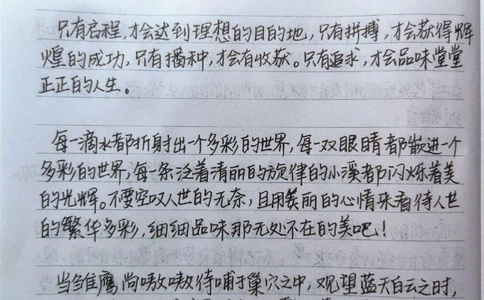 只有启程,才会达到理想的目的地,只有拼搏,才会获得辉
煌的成功,只有播种,才会有收获。只有追求,才会品味堂堂
正正的人生。
每一滴水都折射出一个多彩的世界,每一双眼睛都敞进一个
多彩的世界,每一条泛着清丽的旋律的小溪都闪烁着美
的光辉。不要空叹人世的无奈,且用美丽的心情来看待人世
的繁华多彩,细细品味那无处不在的美吧!
当雏鹰尚嗷嗷待哺于巢穴之中,观望蓝天白云之时,